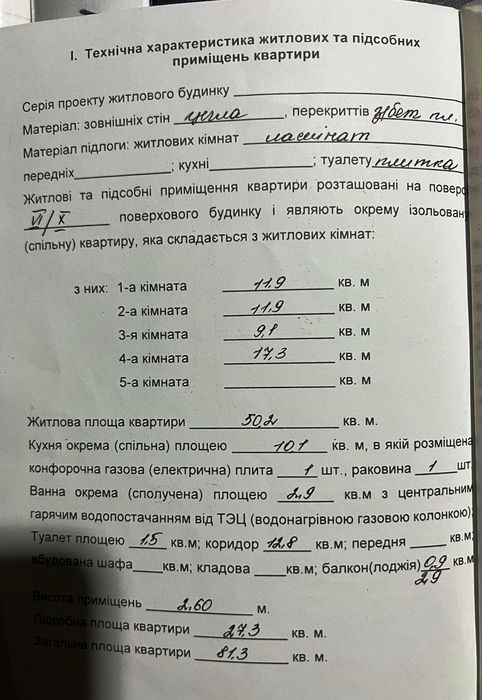 I. Технічна характеристика житлових та підсобних
приміщень квартири
Серія проекту житлового будинку
Матеріал: зовнішніх стін цегла, перекриттів з/бет пл.
Матеріал підлоги: житлових кімнат ламінат
передніх ; кухні ; туалету плитка
Житлові та підсобні приміщення квартири розташовані на поверс
VI/X поверхового будинку і являють окрему ізольован
(спільну) квартиру, яка складається з житлових кімнат:
з них: 1-а кімната 11.9 кв. м
2-а кімната 11.9 кв. м
3-я кімната 9,1 кв. м
4-а кімната 17,3 кв. м
5-а кімната кв. м
Житлова площа квартири 50.2 кв. м.
Кухня окрема (спільна) площею 10.1 кв. м, в якій розміщена
конфорочна газова (електрична) плита 1 шт., раковина 1 шт
Ванна окрема (сполучена) площею 2.9 кв.м з центральним
гарячим водопостачанням від ТЭЦ (водонагрівною газовою колонкою);
Туалет площею 1.5 кв.м; коридор 12.8 кв.м; передня кв.м;
вбудована шафа кв.м; кладова кв.м; балкон(лоджія) 0.9/2.9 кв.м
Висота приміщень 2,60 м.
Підсобна площа квартири 27.3 кв. м.
Загальна площа квартири 81.3 кв. м.